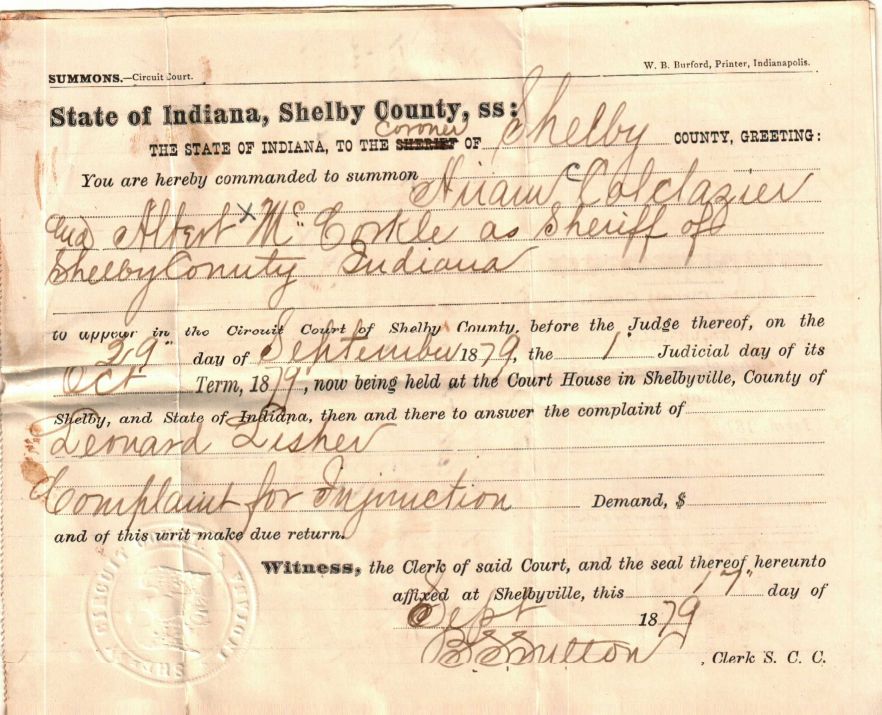 SUMMONS.—Circuit Court.
W. B. Burford, Printer, Indianapolis.
State of Indiana, Shelby County, ss:
Coroner
THE STATE OF INDIANA, TO THE SHERIFF OF Shelby COUNTY, GREETING:
You are hereby commanded to summon Hiram C Colclazier
and Albert x Mc Corkle as Sheriff of
Shelby Conuty Indiana
to appear in the Circuit Court of Shelby County, before the Judge thereof, on the
29" day of September 1879, the 1" Judicial day of its
Oct Term, 1879, now being held at the Court House in Shelbyville, County of
Shelby, and State of Indiana, then and there to answer the complaint of
Leonard Lisher
Complaint for Injunction Demand, $
and of this writ make due return.
Witness, the Clerk of said Court, and the seal thereof hereunto
affixed at Shelbyville, this 17" day of
Sept 1879
Sutton , Clerk S. C. C.
CIRCUIT
INDIANA